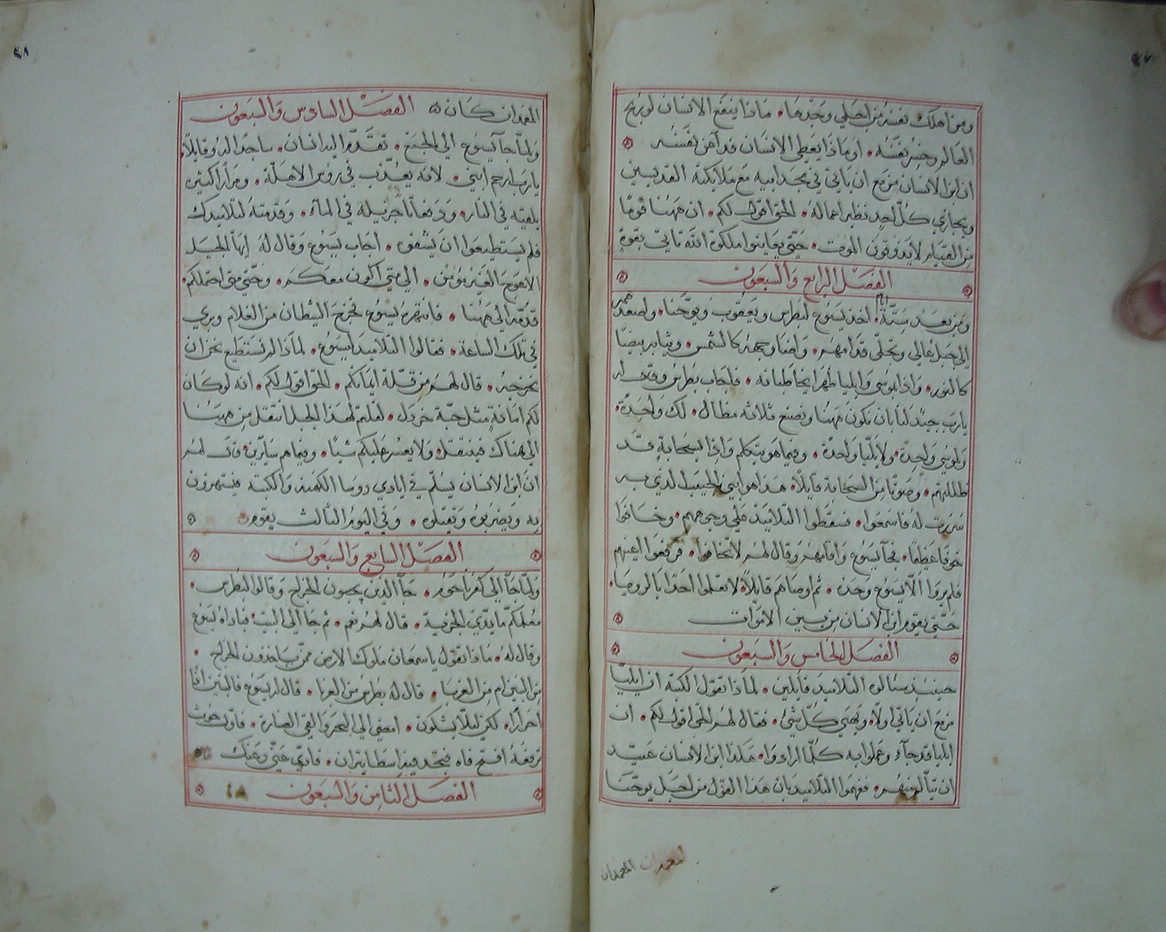 ومن اهلك نفسه من اجلي وجدها • ماذا ينفع الانسان لو ربح
العالم وخسر نفسه • او ماذا يعطي الانسان فدآ عن نفسه
ان ابن الانسان مزمع ان ياتي في مجد ابيه مع ملايكته القديسين
ويجازي كل احد نظير اعماله • الحق اقول لكم • ان ههنا قوما
من القيام لا يذوقون الموت • حتي يعاينوا ملكوة الله تاتي بقوة
الفصل الرابع والسبعون
ومن بعد ستة ايام • اخذ يسوع لبطرس ويعقوب ويوحنا • واصعدهم
الي جبل عالي وتجلي قدامهم • واضا وجهه كالشمس • وثيابه بيضا
كالنور • واذا موسي وايليا ظهرا يخاطبانه • فاجاب بطرس وقال له
يارب جيد لنا بان نكون ههنا ونصنع ثلاثه مظال • لك واحدة
ولموسي واحدة ولايليا واحدة • وفيما هو يتكلم واذا سحابة قد
ظللتهم • وصوتا من السحابة قايلا • هذا هو ابني الحبيب الذي به
سررت له فاسمعوا • فسقطوا التلاميذ علي وجوههم • وخافوا
خوفا عظيما • فجآ يسوع واقامهم وقال لهم لا تخافوا • فرفعوا اعينهم
فلم يروا الا يسوع وحده • ثم اوصاهم قايلا • لا تعلموا احدا بالرويا •
حتي يقوم ابن الانسان من بين الاموات
الفصل الخامس والسبعون
حينيذ سالوه التلاميذ قايلين • لماذا تقول الكتبة ان ايليا
مزمع ان ياتي اولا • ويهيي كل شي • فقال لهم الحق اقول لكم • ان
ايليا قد جآ • وعملوا به كلما ارادوا • هكذا ابن الانسان عتيد
ان يتالم منهم • ففهموا التلاميذ بان هذا القول من اجل يوحنا
المعمدان
المعمدان كان الفصل السادس والسبعون
ولما جآ يسوع الي الجمع • تقدم اليه انسان • ساجدا له وقايلا
يارب ارحم ابني • لانه يعذب في روس الاهلة • ومرارا كثيره
يلقيه في النار • ودفعاتا جزيله في المآء • وقدمته لتلاميذك
فلم يستطيعوا ان يشفوه • اجاب يسوع وقال له ايها الجيل
الاعوج الغير مومن • الي متي اكون معكم • وحتي متي احتملكم •
قدموه الي ههنا • فانتهره يسوع فخرج الشيطان من الغلام وبري
في تلك الساعة • فقالوا التلاميذ ليسوع • لماذا لم نستطيع نحن ان
نخرجه • قال لهم من قلة ايمانكم • الحق اقول لكم • انه لو كان
لكم امانة مثل حبة خردل • لقلتم لهذا الجبل انتقل من ههنا
الي هناك فينتقل • ولا يعسر عليكم شيا • وفيما هم سايرين قال لهم
ان ابن الانسان يسلم في ايادي روسا الكهنة والكتبة فيستهزون
به ويضربوه ويقتلوه • وفي اليوم الثالث يقوم
الفصل السابع والسبعون
ولما جآ الي كفرناحوم • جآ الذين يجبون الخراج وقالوا لبطرس
معلمكم ما يودي الجزية • قال لهم نعم • ثم جا الي البيت • فباداه يسوع
وقال له • ماذا تقول يا سمعان ملوك الارض ممن ياخذون الخراج •
من البنين ام من الغربا • قال له بطرس من الغربا • قال له يسوع فالبنين اذا
احرارا • لكن ليلا يشكون • امضي الي البحر والقي الصنارة • فاول حوت
ترفعه افتح فاه فتجد فيه اسطاتيران • فادي عني وعنك
الفصل الثامن والسبعون
٤٨